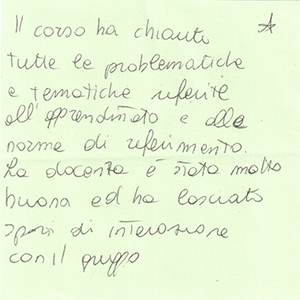 Il corso ha chiarito
tutte le problematiche
e tematiche riferite
all'apprendistato e alle
norme di riferimento.
La docenza è stata molto
buona ed ha lasciato
spazi di interazione
con il gruppo